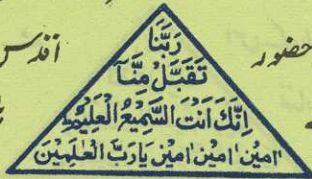 رَبَّنَا
حضور
اقدس
تَقَبَّلْ مِنَّا
اِنَّكَ اَنْتَ السَّمِيْعُ الْعَلِيْمُ
اٰمِيْن اٰمِيْن اٰمِيْن يَارَبَّ الْعٰلَمِيْنَ